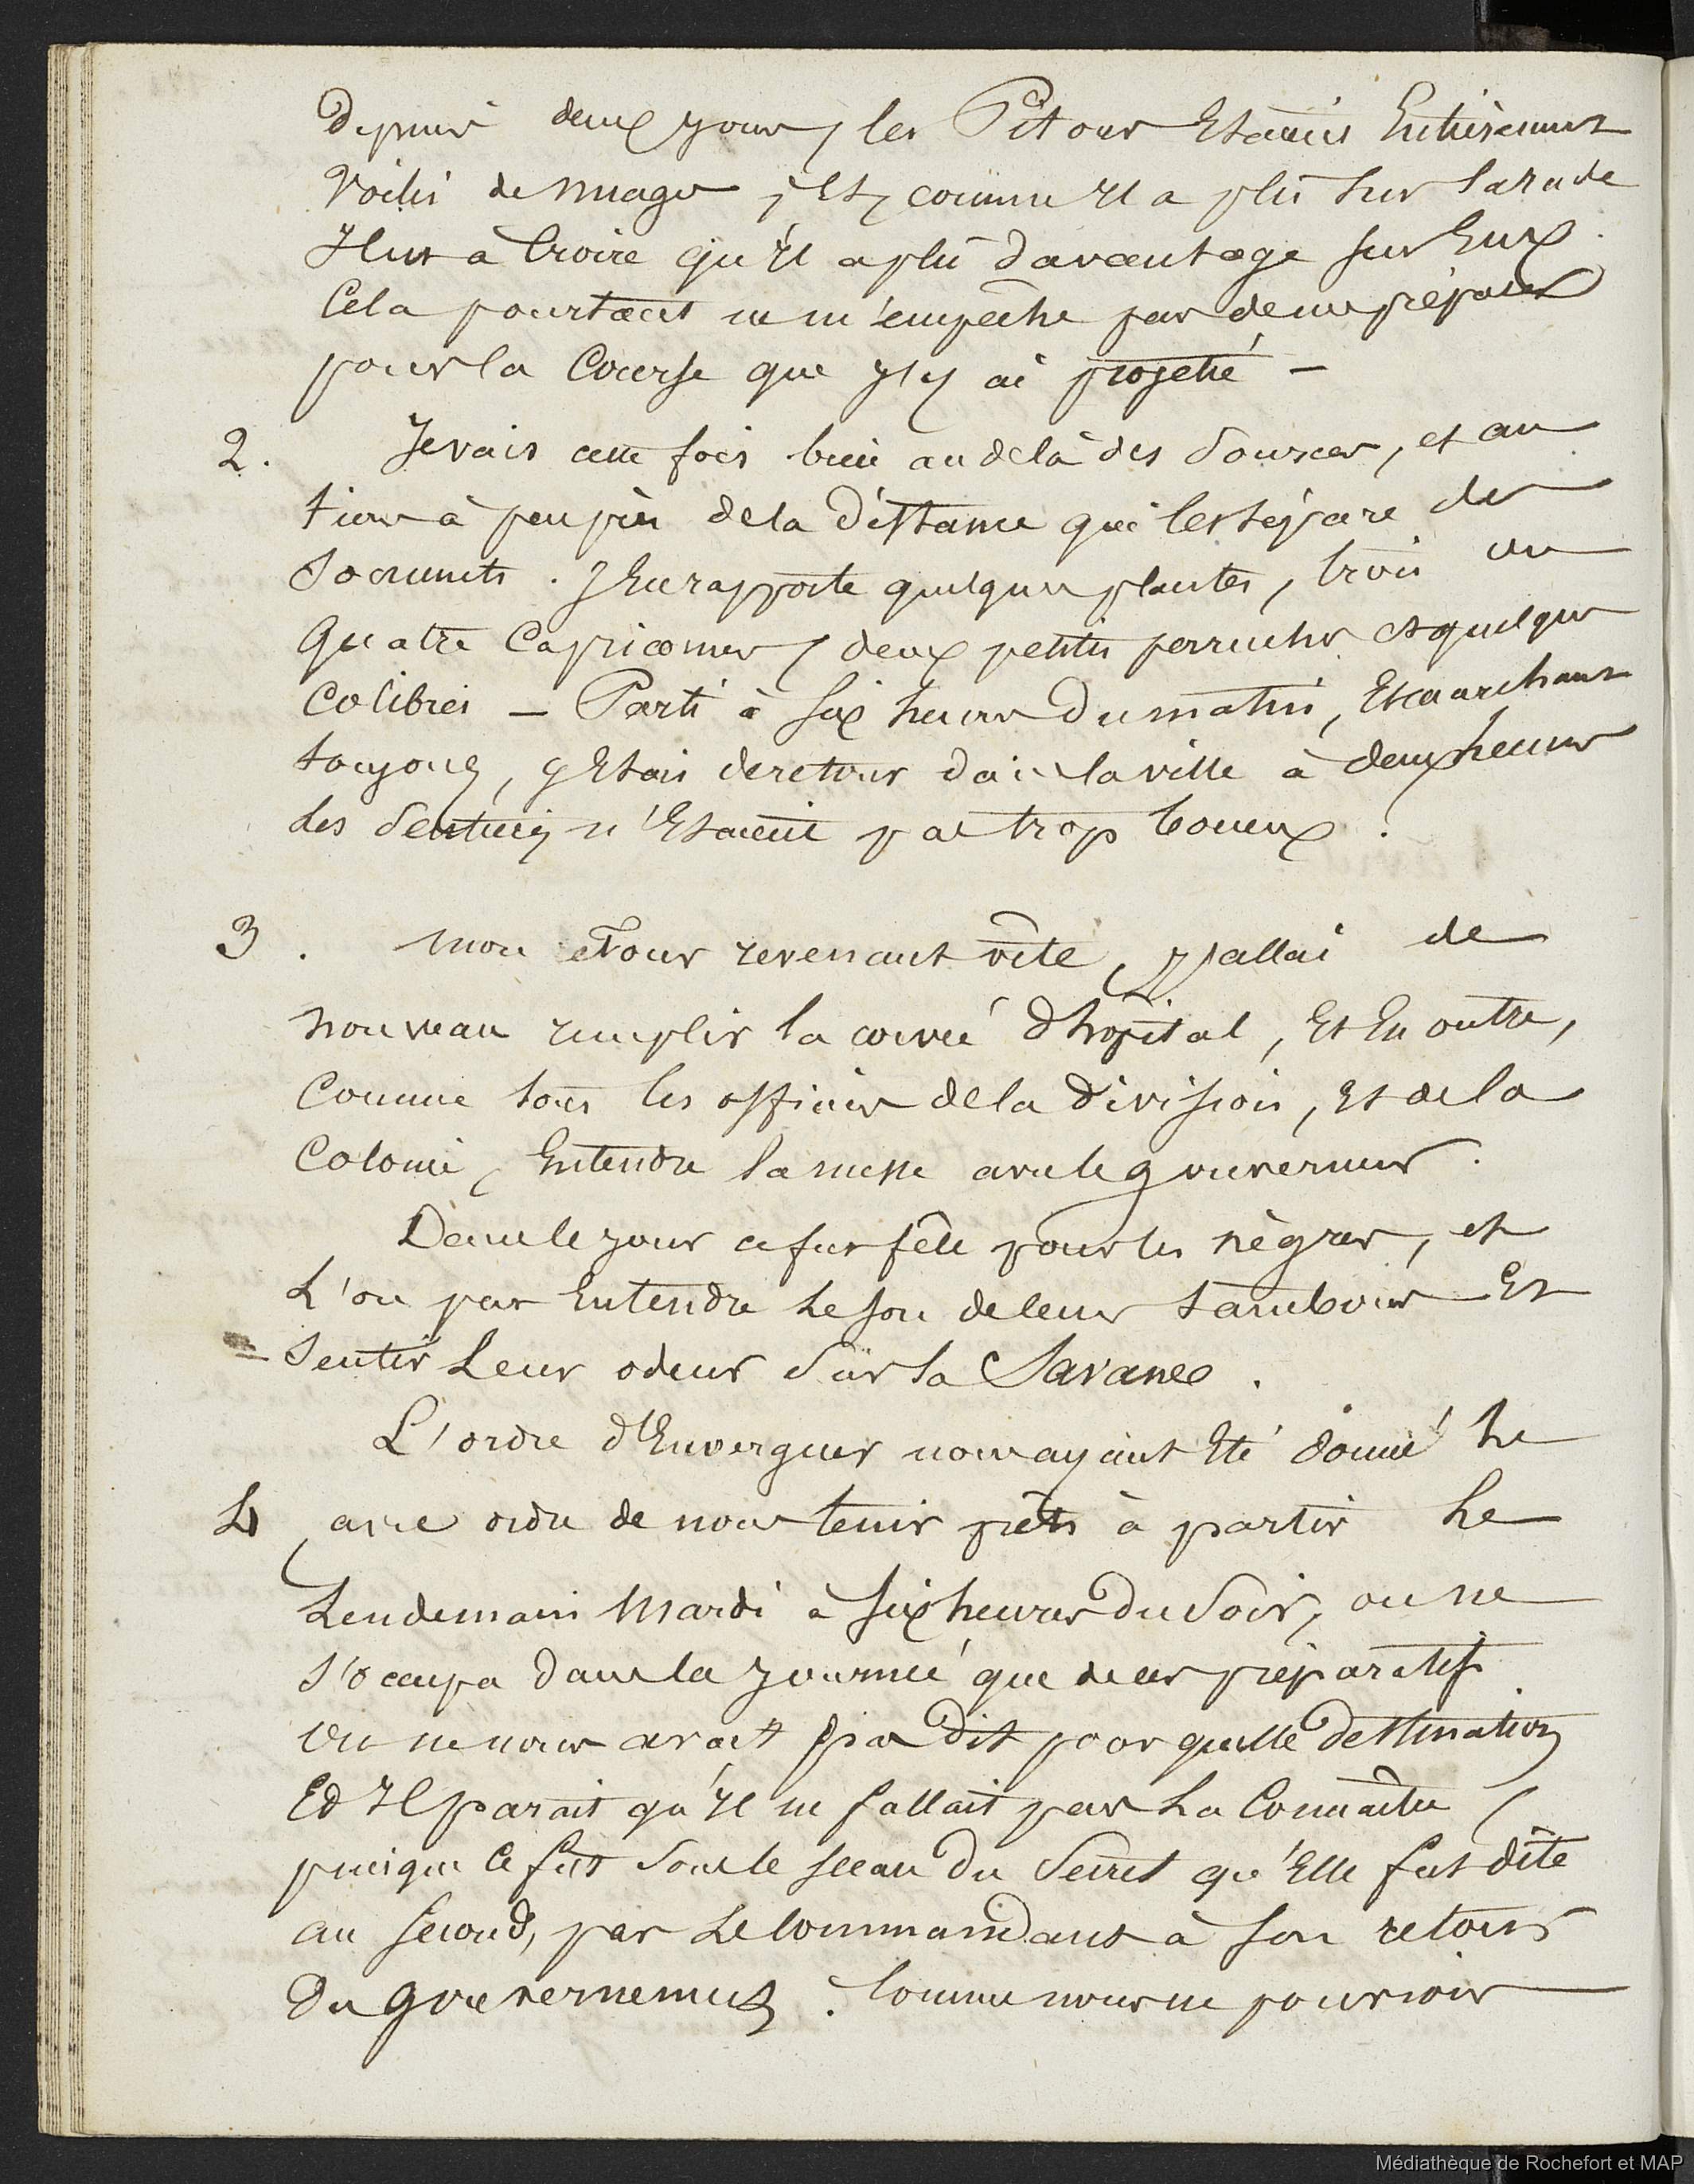 Depuis deux jours, les Pitons Etaient Entièrement
Voilés de nuages, Et, comme Il a plû sur la rade
Il est à Croire qu'Il a plû davantage sur Eux.
Cela pourtant ne m'empêche pas de me préparer
pour la Course que j'y ai projetté -
2. Je vais cette fois bien au delà des Sources, et au
tiers à peu près de la distance qui les sépare des
Sommets. J'En rapporte quelques plantes, trois ou
Quatre Capricornes, deux petites perruches et quelques
Colibris - Parti à six heures Du matin, Et marchant
toujours, j'Etais de retour dans la ville à deux heures
Les Sentiers n'Etaient pas trop boueux.
3. Mon tour revenant vîte, j'allai de
nouveau remplir la corvée d'hôpital, Et En outre,
Comme tous les officiers de la Division, Et de la
Colonie, Entendre la messe avec le gouverneur.
Dans le jour ce fut fête pour les nègres, et
L'on put Entendre le son de leurs tambours Et
Sentir Leur odeur Sur la Savane.
L'ordre d'Enverguer nous ayant Eté donné le
4, avec ordre de nous tenir prêts à partir le
Lendemain Mardi à six heures Du Soir, on ne
s'occupa dans la journée que de ces préparatifs.
On ne nous avait pas Dit pour quelle Destination
Et Il parait qu'Il ne fallait pas La Connaître,
puisque Ce fut Sous le sceau Du Secret qu'Elle fut dite
au Second, par Le Commandant à son retour
Du Gouvernement. Comme nous ne pouvions
Médiathèque de Rochefort et MAP